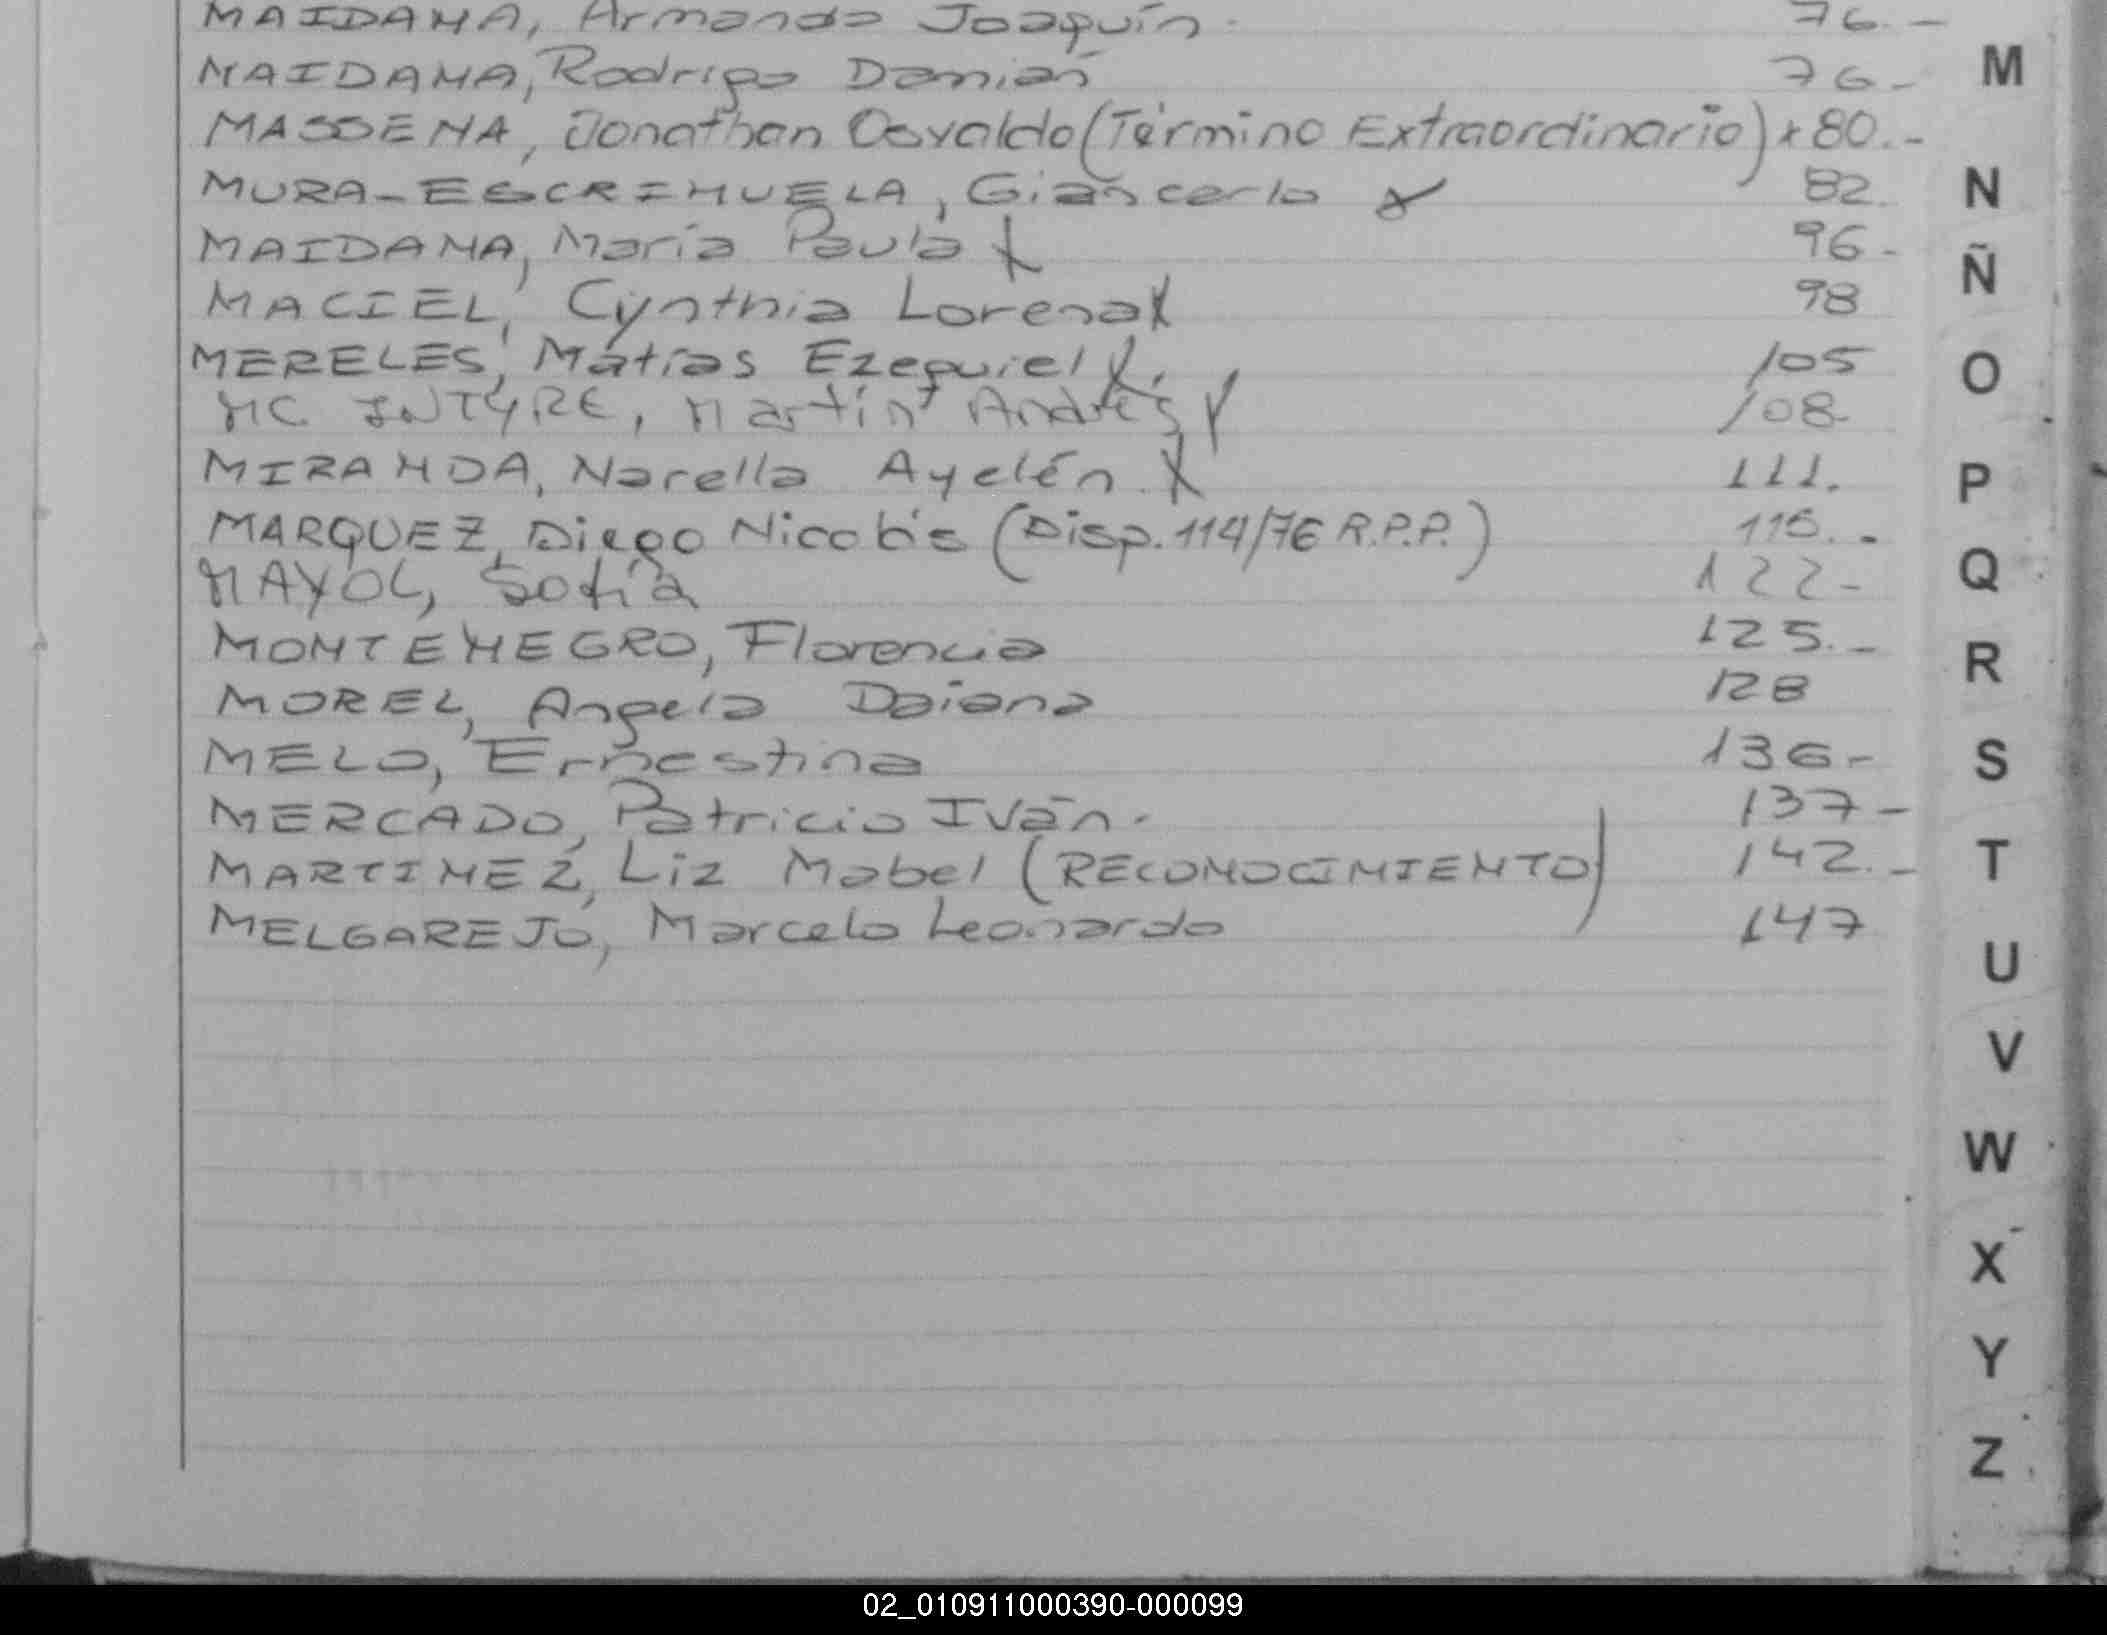 MAIDANA, Armando Joaquín. 76.-
MAIDANA, Rodrigo Damián 76-
MASSENA, Jonathan Osvaldo (Término Extraordinario) x 80.-
MURA-ESCRIHUELA, Giancarlo x 82.
MAIDANA, María Paula x 96-
MACIEL, Cynthia Lorena x 98
MERELES, Matías Ezequiel x. 105
MC INTYRE, Martín Andrés x 108-
MIRANDA, Narella Ayelén x 111.
MARQUEZ, Diego Nicolás (Disp. 114/76 R.P.P.) 116.-
MAYOL, Sofía 122-
MONTENEGRO, Florencia 125.-
MOREL, Angela Daiana 128
MELO, Ernestina 136-
MERCADO, Patricio Iván. 137-
MARTINEZ, Liz Mabel (RECONOCIMIENTO) 142.-
MELGAREJO, Marcelo Leonardo 147
M
N
Ñ
O
P
Q
R
S
T
U
V
W
X
Y
Z
02_010911000390-000099